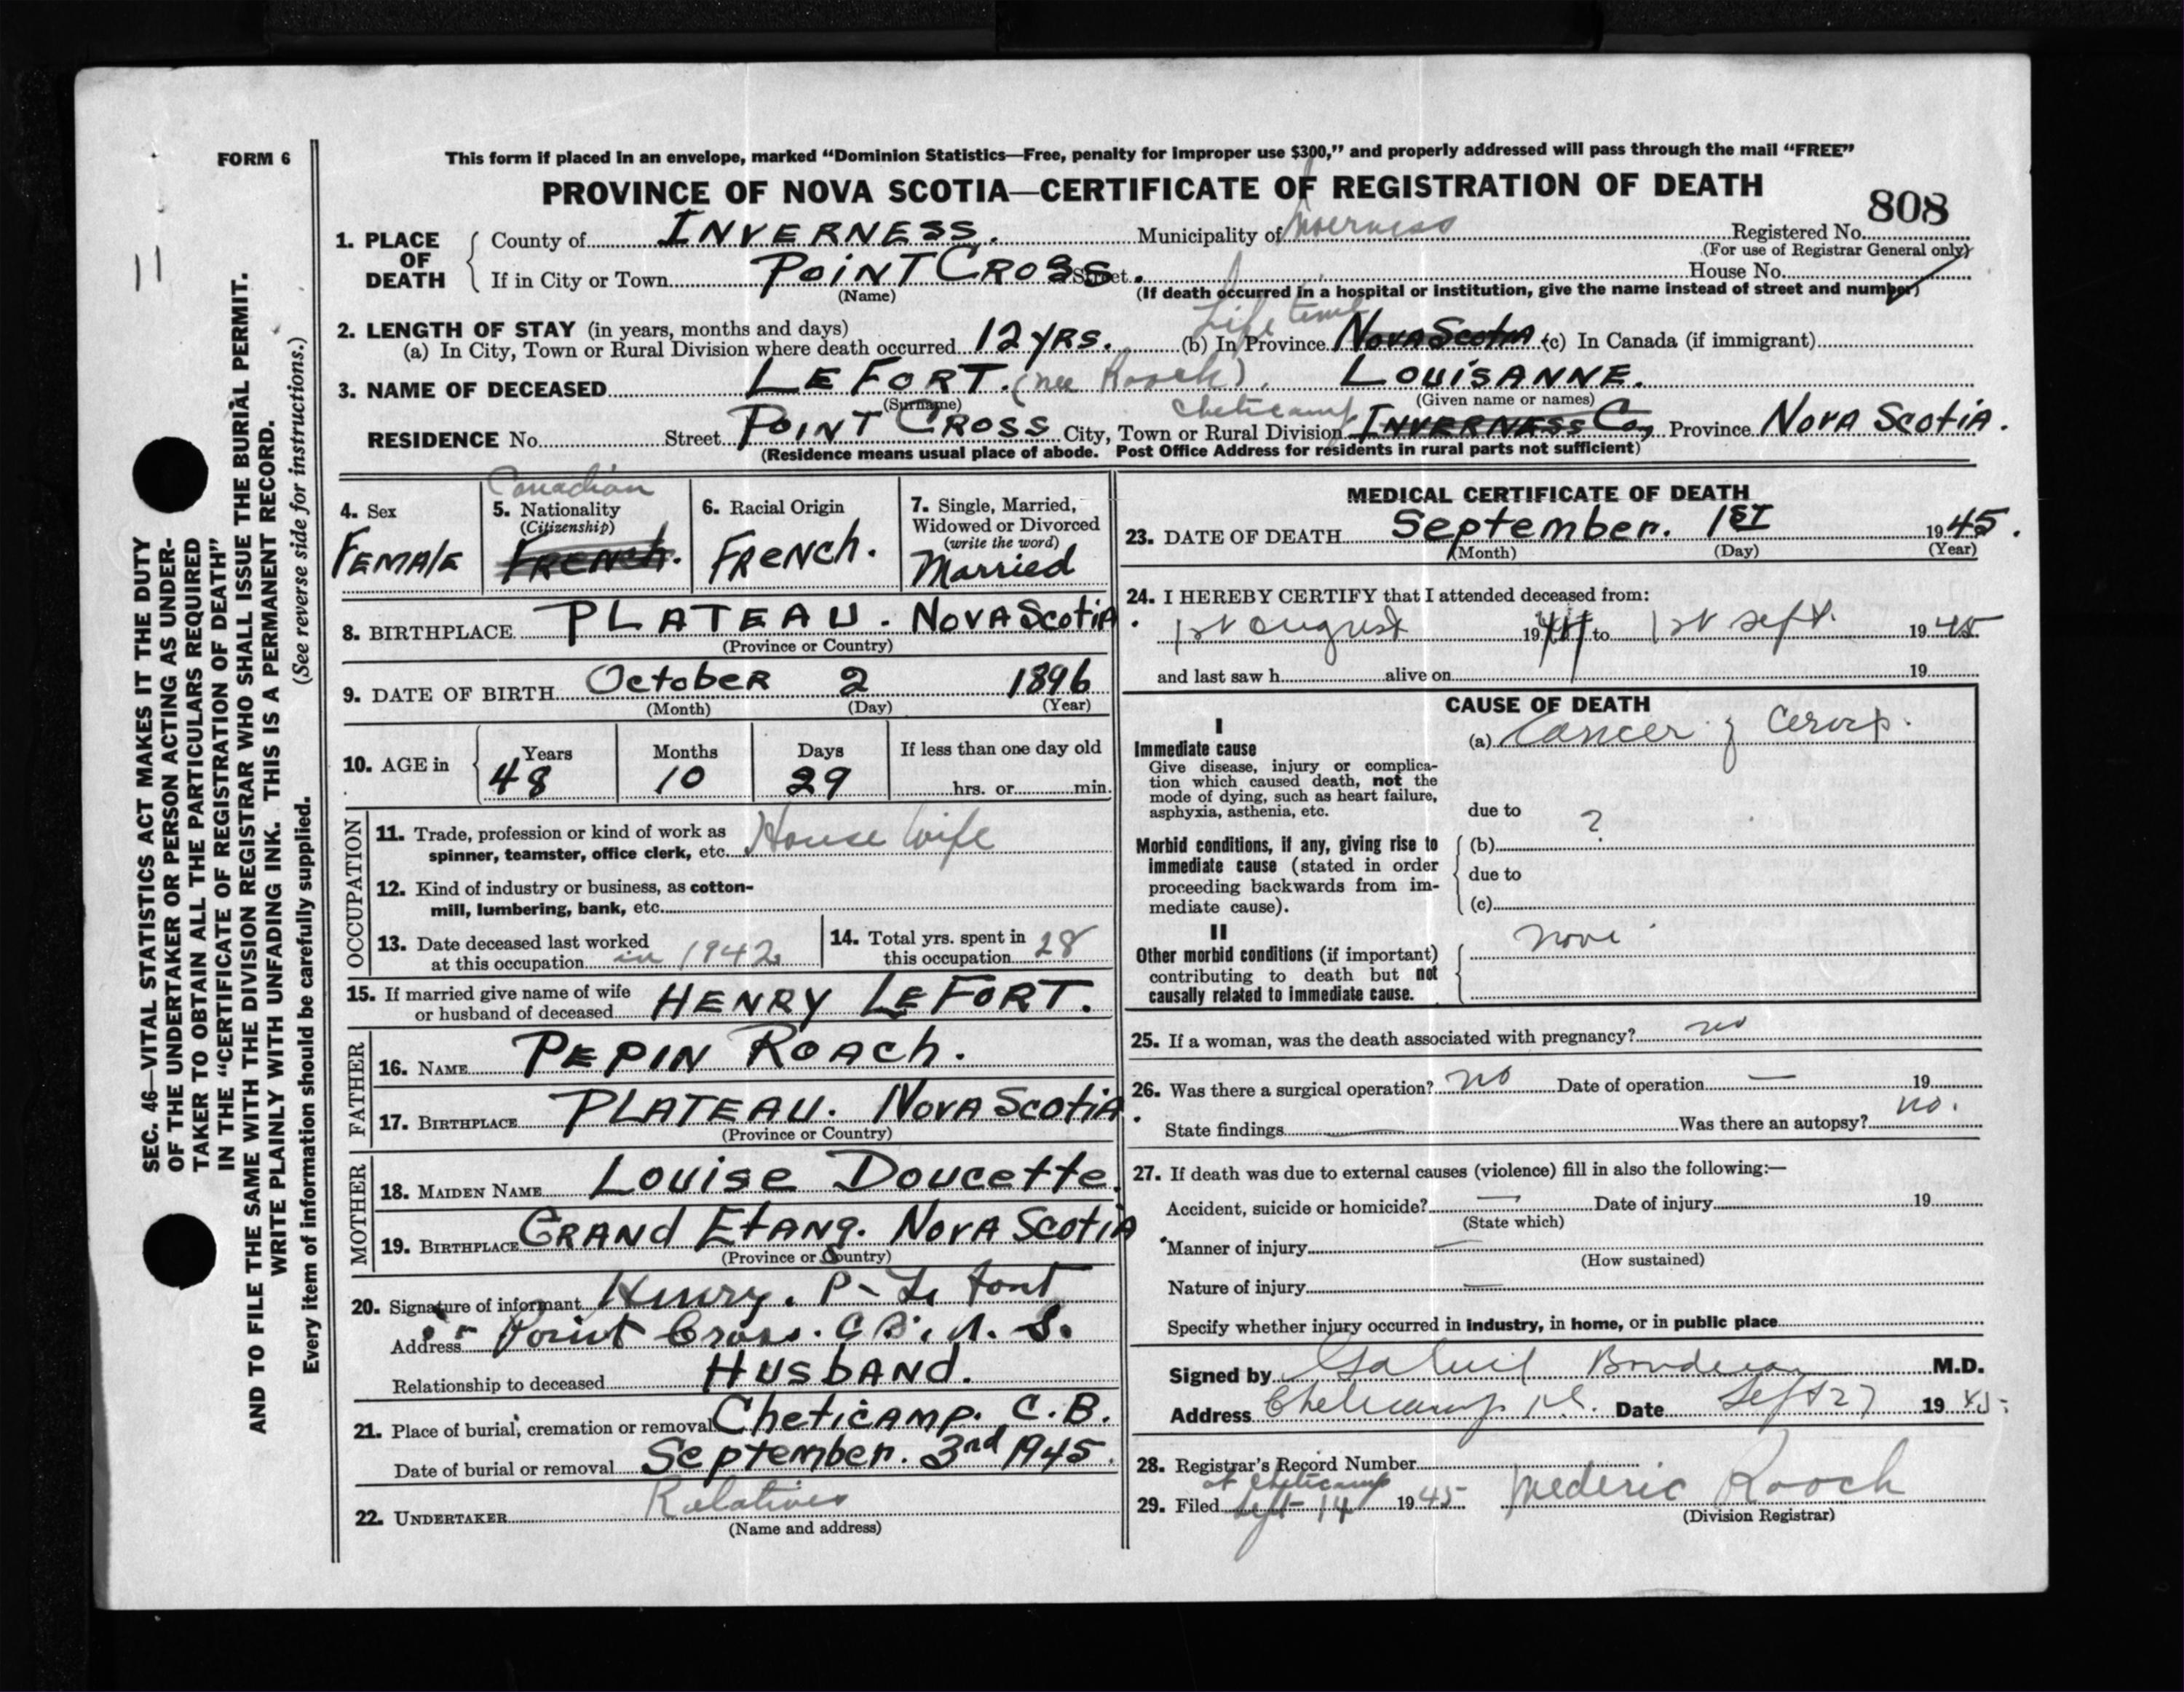 FORM 6
This form if placed in an envelope, marked “Dominion Statistics—Free, penalty for improper use $300,” and properly addressed will pass through the mail “FREE”
PROVINCE OF NOVA SCOTIA—CERTIFICATE OF REGISTRATION OF DEATH
808
11
SEC. 46—VITAL STATISTICS ACT MAKES IT THE DUTY
OF THE UNDERTAKER OR PERSON ACTING AS UNDER-
TAKER TO OBTAIN ALL THE PARTICULARS REQUIRED
IN THE “CERTIFICATE OF REGISTRATION OF DEATH”
AND TO FILE THE SAME WITH THE DIVISION REGISTRAR WHO SHALL ISSUE THE BURIAL PERMIT.
WRITE PLAINLY WITH UNFADING INK. THIS IS A PERMANENT RECORD.
Every item of information should be carefully supplied. (See reverse side for instructions.)
1. PLACE OF DEATH
County of INVERNESS. Municipality of Inverness Registered No.
(For use of Registrar General only)
If in City or Town POINT CROSS. Street House No.
(Name) (If death occurred in a hospital or institution, give the name instead of street and number)
2. LENGTH OF STAY (in years, months and days) Life time
(a) In City, Town or Rural Division where death occurred 12 YRS. (b) In Province Nova Scotia (c) In Canada (if immigrant)
3. NAME OF DECEASED LE FORT. (nee Roach), LOUISANNE.
(Surname) (Given name or names)
Cheticamp
RESIDENCE No. Street POINT CROSS City, Town or Rural Division INVERNESS Co, Province NOVA SCOTIA.
(Residence means usual place of abode. Post Office Address for residents in rural parts not sufficient)
4. Sex
FEMALE
Canadian
5. Nationality
(Citizenship)
FRENCH.
6. Racial Origin
FRENCH.
7. Single, Married,
Widowed or Divorced
(write the word)
Married
8. BIRTHPLACE PLATEAU. NOVA SCOTIA.
(Province or Country)
9. DATE OF BIRTH OCTOBER 2 1896
(Month) (Day) (Year)
10. AGE in
Years Months Days If less than one day old
48 10 29 hrs. or min.
OCCUPATION
11. Trade, profession or kind of work as
spinner, teamster, office clerk, etc. House Wife
12. Kind of industry or business, as cotton-
mill, lumbering, bank, etc.
13. Date deceased last worked
at this occupation in 1942
14. Total yrs. spent in
this occupation 28
15. If married give name of wife
or husband of deceased HENRY LEFORT.
FATHER
16. NAME PEPIN ROACH.
17. BIRTHPLACE PLATEAU. NOVA SCOTIA.
(Province or Country)
MOTHER
18. MAIDEN NAME LOUISE DOUCETTE.
19. BIRTHPLACE GRAND ETANG. NOVA SCOTIA.
(Province or Country)
20. Signature of informant Henry. P- Le fort
Address Point Cross. C B. N. S.
Relationship to deceased HUSBAND.
21. Place of burial, cremation or removal CHETICAMP. C.B.
Date of burial or removal SEPTEMBER. 3rd 1945.
22. UNDERTAKER Relatives
(Name and address)
MEDICAL CERTIFICATE OF DEATH
23. DATE OF DEATH September. 1ST 1945.
(Month) (Day) (Year)
24. I HEREBY CERTIFY that I attended deceased from:
1st august 1944 to 1st sept. 1945
and last saw h alive on 19
CAUSE OF DEATH
I
Immediate cause
Give disease, injury or complica-
tion which caused death, not the
mode of dying, such as heart failure,
asphyxia, asthenia, etc.
(a) Cancer of Cervix.
due to
Morbid conditions, if any, giving rise to
immediate cause (stated in order
proceeding backwards from im-
mediate cause).
(b) ?
due to
(c)
II
Other morbid conditions (if important)
contributing to death but not
causally related to immediate cause.
none
25. If a woman, was the death associated with pregnancy? no
26. Was there a surgical operation? no Date of operation — 19
State findings — Was there an autopsy? no.
27. If death was due to external causes (violence) fill in also the following:—
Accident, suicide or homicide? — Date of injury 19
(State which)
Manner of injury —
(How sustained)
Nature of injury —
Specify whether injury occurred in industry, in home, or in public place
Signed by Gabriel Boudreau M.D.
Address Cheticamp N.S. Date Sept 27 1945.
28. Registrar's Record Number
at Cheticamp
29. Filed Sept- 14 1945 Mederic Roach
(Division Registrar)